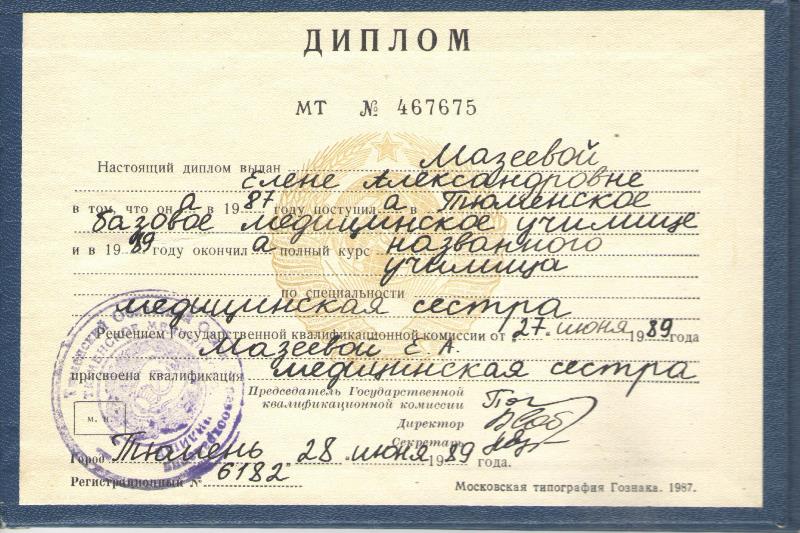 ДИПЛОМ
МТ № 467675
Настоящий диплом выдан Мазеевой
Елене Александровне
в том, что он а в 19 87 году поступил а в Тюменское
базовое медицинское училище
и в 19 89 году окончил а полный курс названного
училища
по специальности
медицинская сестра
Решением Государственной квалификационной комиссии от „27„ июня 19 89 года
Мазеевой Е. А.
присвоена квалификация медицинская сестра
Председатель Государственной
квалификационной комиссии
Директор
Секретарь
м. п.
Город Тюмень „ 28 „ июня 19 89 года.
Регистрационный № 6182
Московская типография Гознака. 1987.